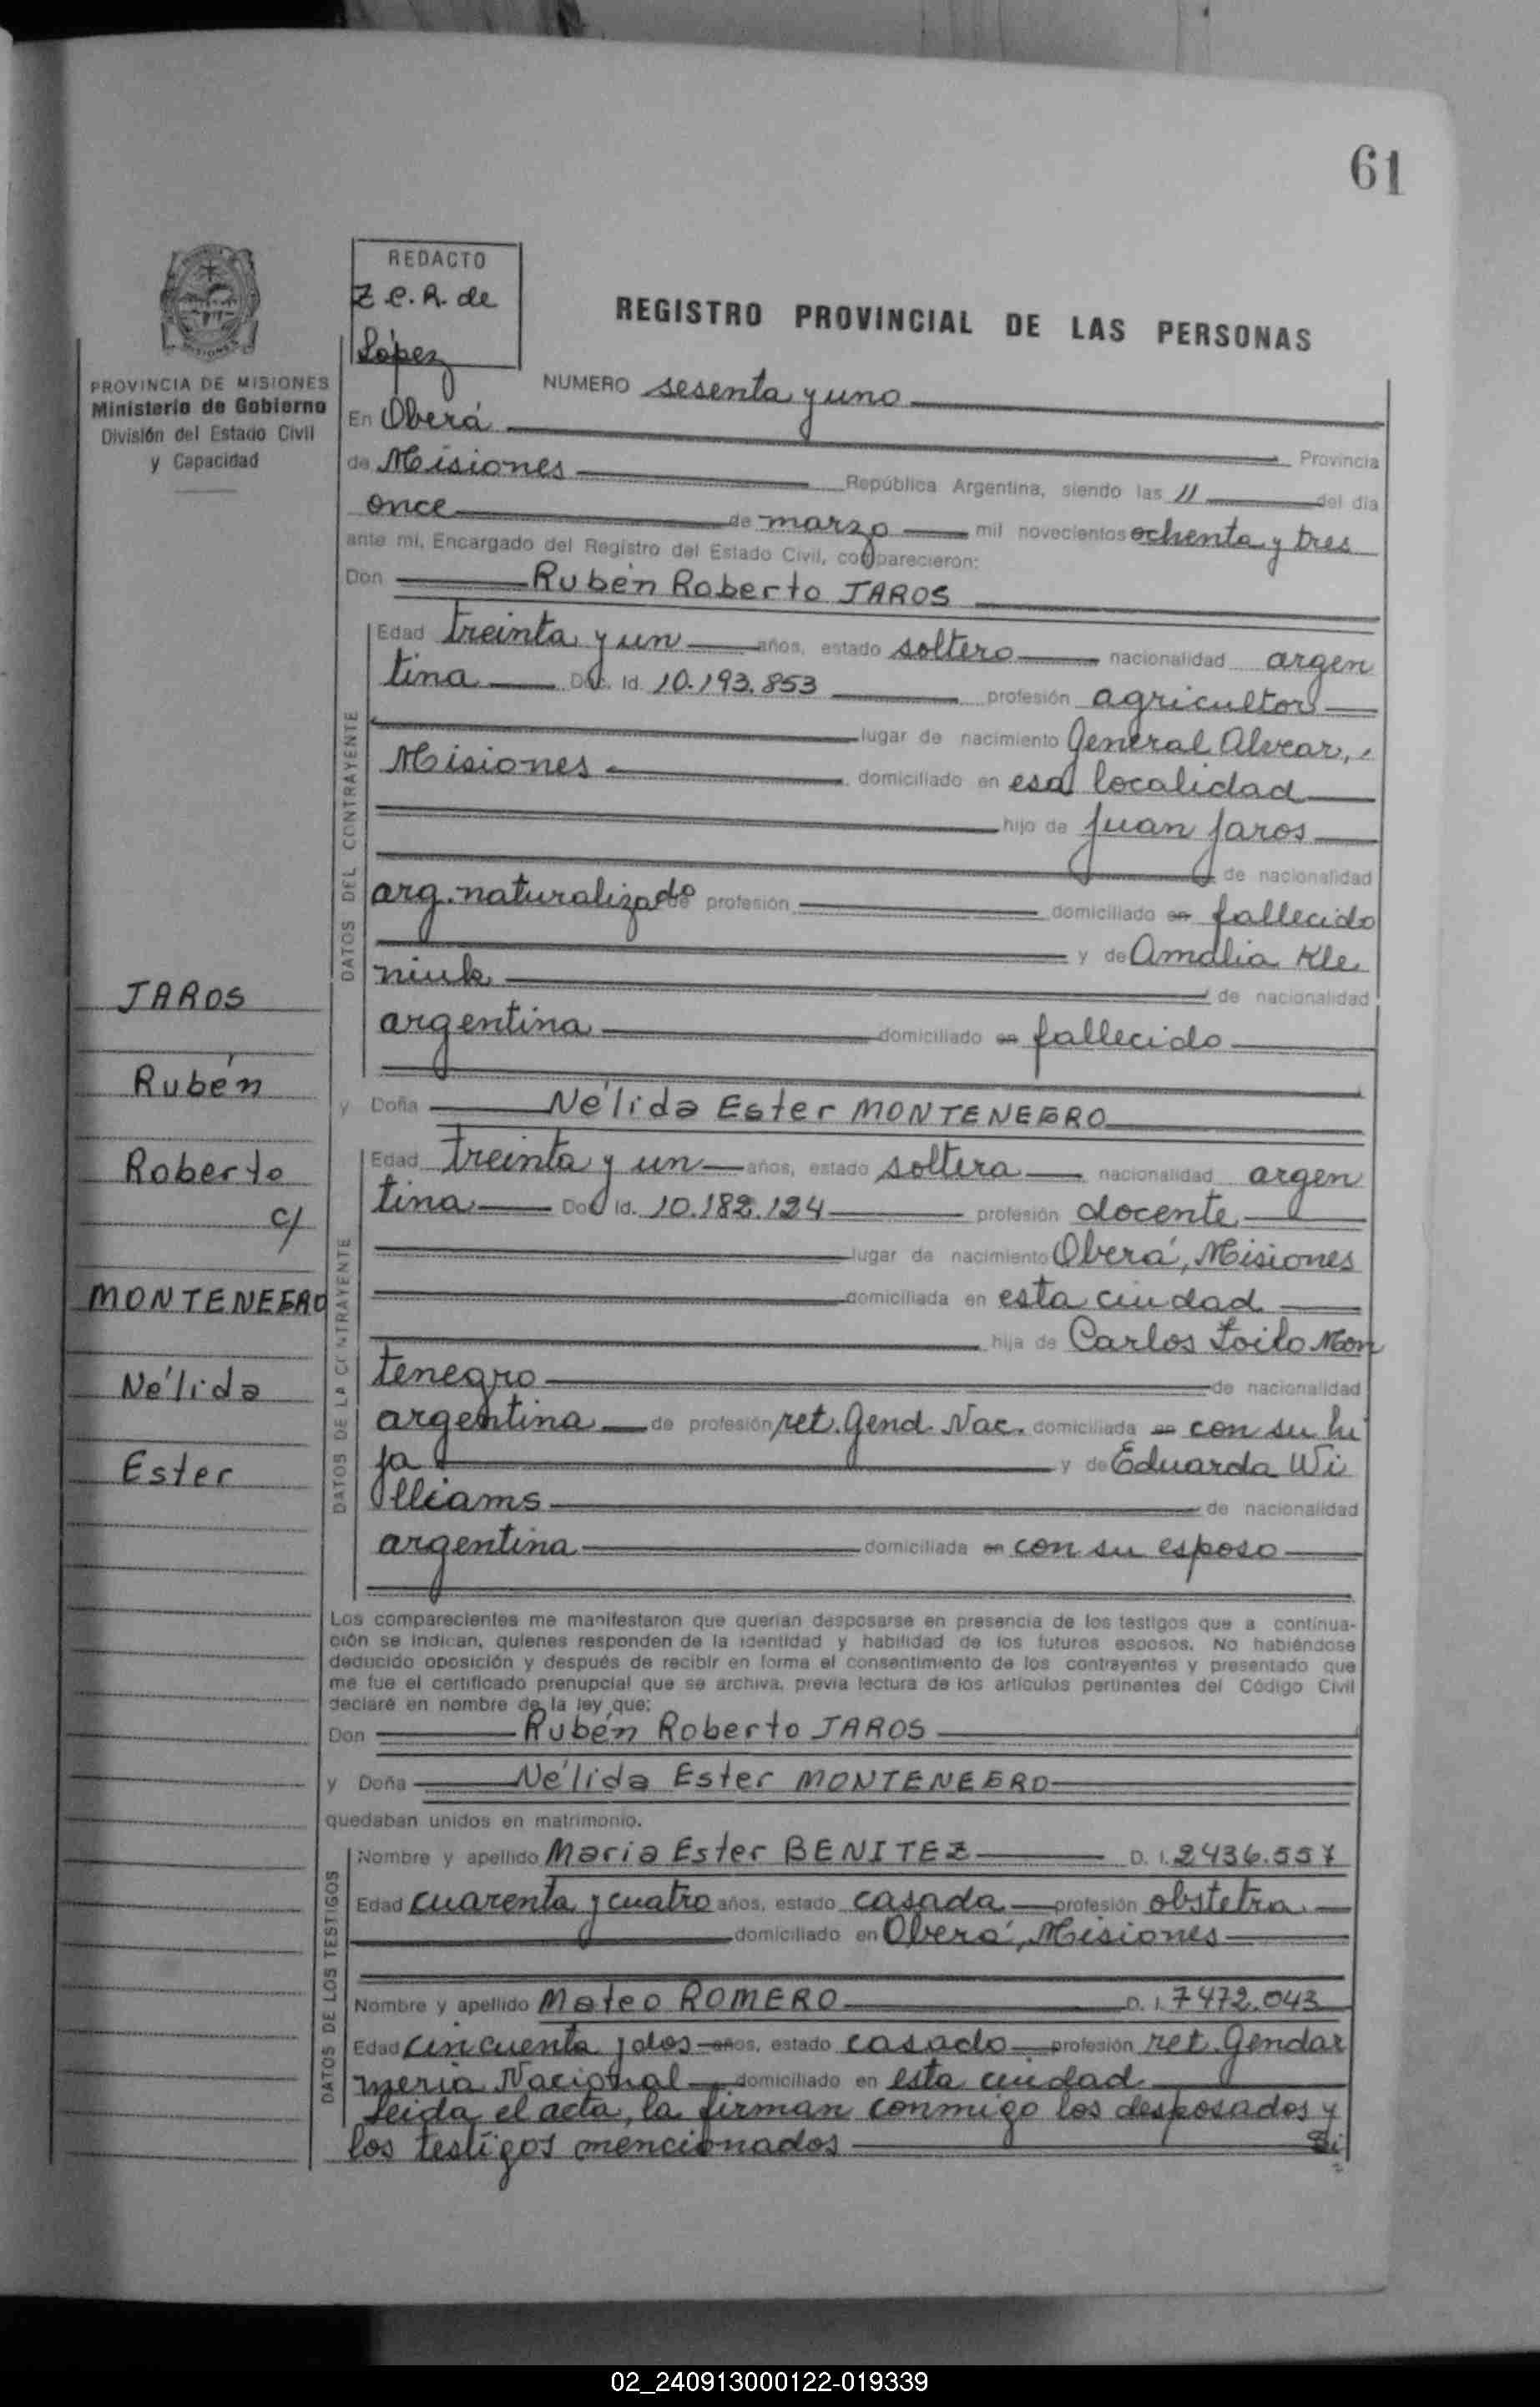 61
REDACTO
Z C. R. de
López
REGISTRO PROVINCIAL DE LAS PERSONAS
PROVINCIA DE MISIONES
Ministerio de Gobierno
División del Estado Civil
y Capacidad
NUMERO sesenta y uno
En Oberá
Provincia
de Misiones República Argentina, siendo las 11 del día
once de marzo mil novecientos ochenta y tres
ante mi, Encargado del Registro del Estado Civil, comparecieron:
Don Rubén Roberto JAROS
DATOS DEL CONTRAYENTE
Edad treinta y un años, estado soltero nacionalidad argen
tina Doc. Id. 10.193.853 profesión agricultor
lugar de nacimiento General Alvear,
Misiones domiciliado en esa localidad
hijo de Juan Jaros
de nacionalidad
arg. naturalizado de profesión domiciliado en fallecido
y de Amalia Kle
niuk de nacionalidad
argentina domiciliado en fallecido
y Doña Nélida Ester MONTENEGRO
DATOS DE LA CONTRAYENTE
Edad treinta y un años, estado soltera nacionalidad argen
tina Doc Id. 10.182.124 profesión docente
lugar de nacimiento Oberá, Misiones
domiciliada en esta ciudad
hija de Carlos Zoilo Mon
tenegro de nacionalidad
argentina de profesión ret. Gend. Nac. domiciliada en con su hi
ja y de Eduarda Wi
lliams de nacionalidad
argentina domiciliada en con su esposo
JAROS
Rubén
Roberto
c/
MONTENEGRO
Nélida
Ester
Los comparecientes me manifestaron que querían desposarse en presencia de los testigos que a continua-
ción se indican, quienes responden de la identidad y habilidad de los futuros esposos. No habiéndose
deducido oposición y después de recibir en forma el consentimiento de los contrayentes y presentado que
me fue el certificado prenupcial que se archiva, previa lectura de los artículos pertinentes del Código Civil
declaré en nombre de la ley que:
Don Rubén Roberto JAROS
y Doña Nélida Ester MONTENEGRO
quedaban unidos en matrimonio.
DATOS DE LOS TESTIGOS
Nombre y apellido Maria Ester BENITEZ D. I. 2436.557
Edad cuarenta y cuatro años, estado casada profesión obstetra
domiciliado en Oberá, Misiones
Nombre y apellido Mateo ROMERO D. I. 7472.043
Edad cincuenta y dos años, estado casado profesión ret. Gendar
meria Nacional domiciliado en esta ciudad
Leida el acta, la firman conmigo los desposados y
los testigos mencionados
02_240913000122-019339